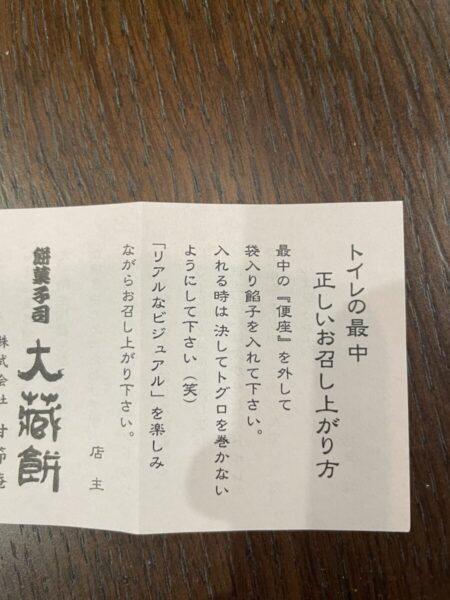 トイレの最中
正しいお召し上がり方
最中の『便座』を外して
袋入り餡子を入れて下さい。
入れる時は決してトグロを巻かない
ようにして下さい(笑)
「リアルなビジュアル」を楽しみ
ながらお召し上がり下さい。
店主
餅菓子司 大蔵餅
株式会社 甘節庵